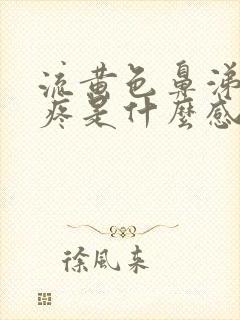 流黄色鼻涕
疼是什麼感
徐風来